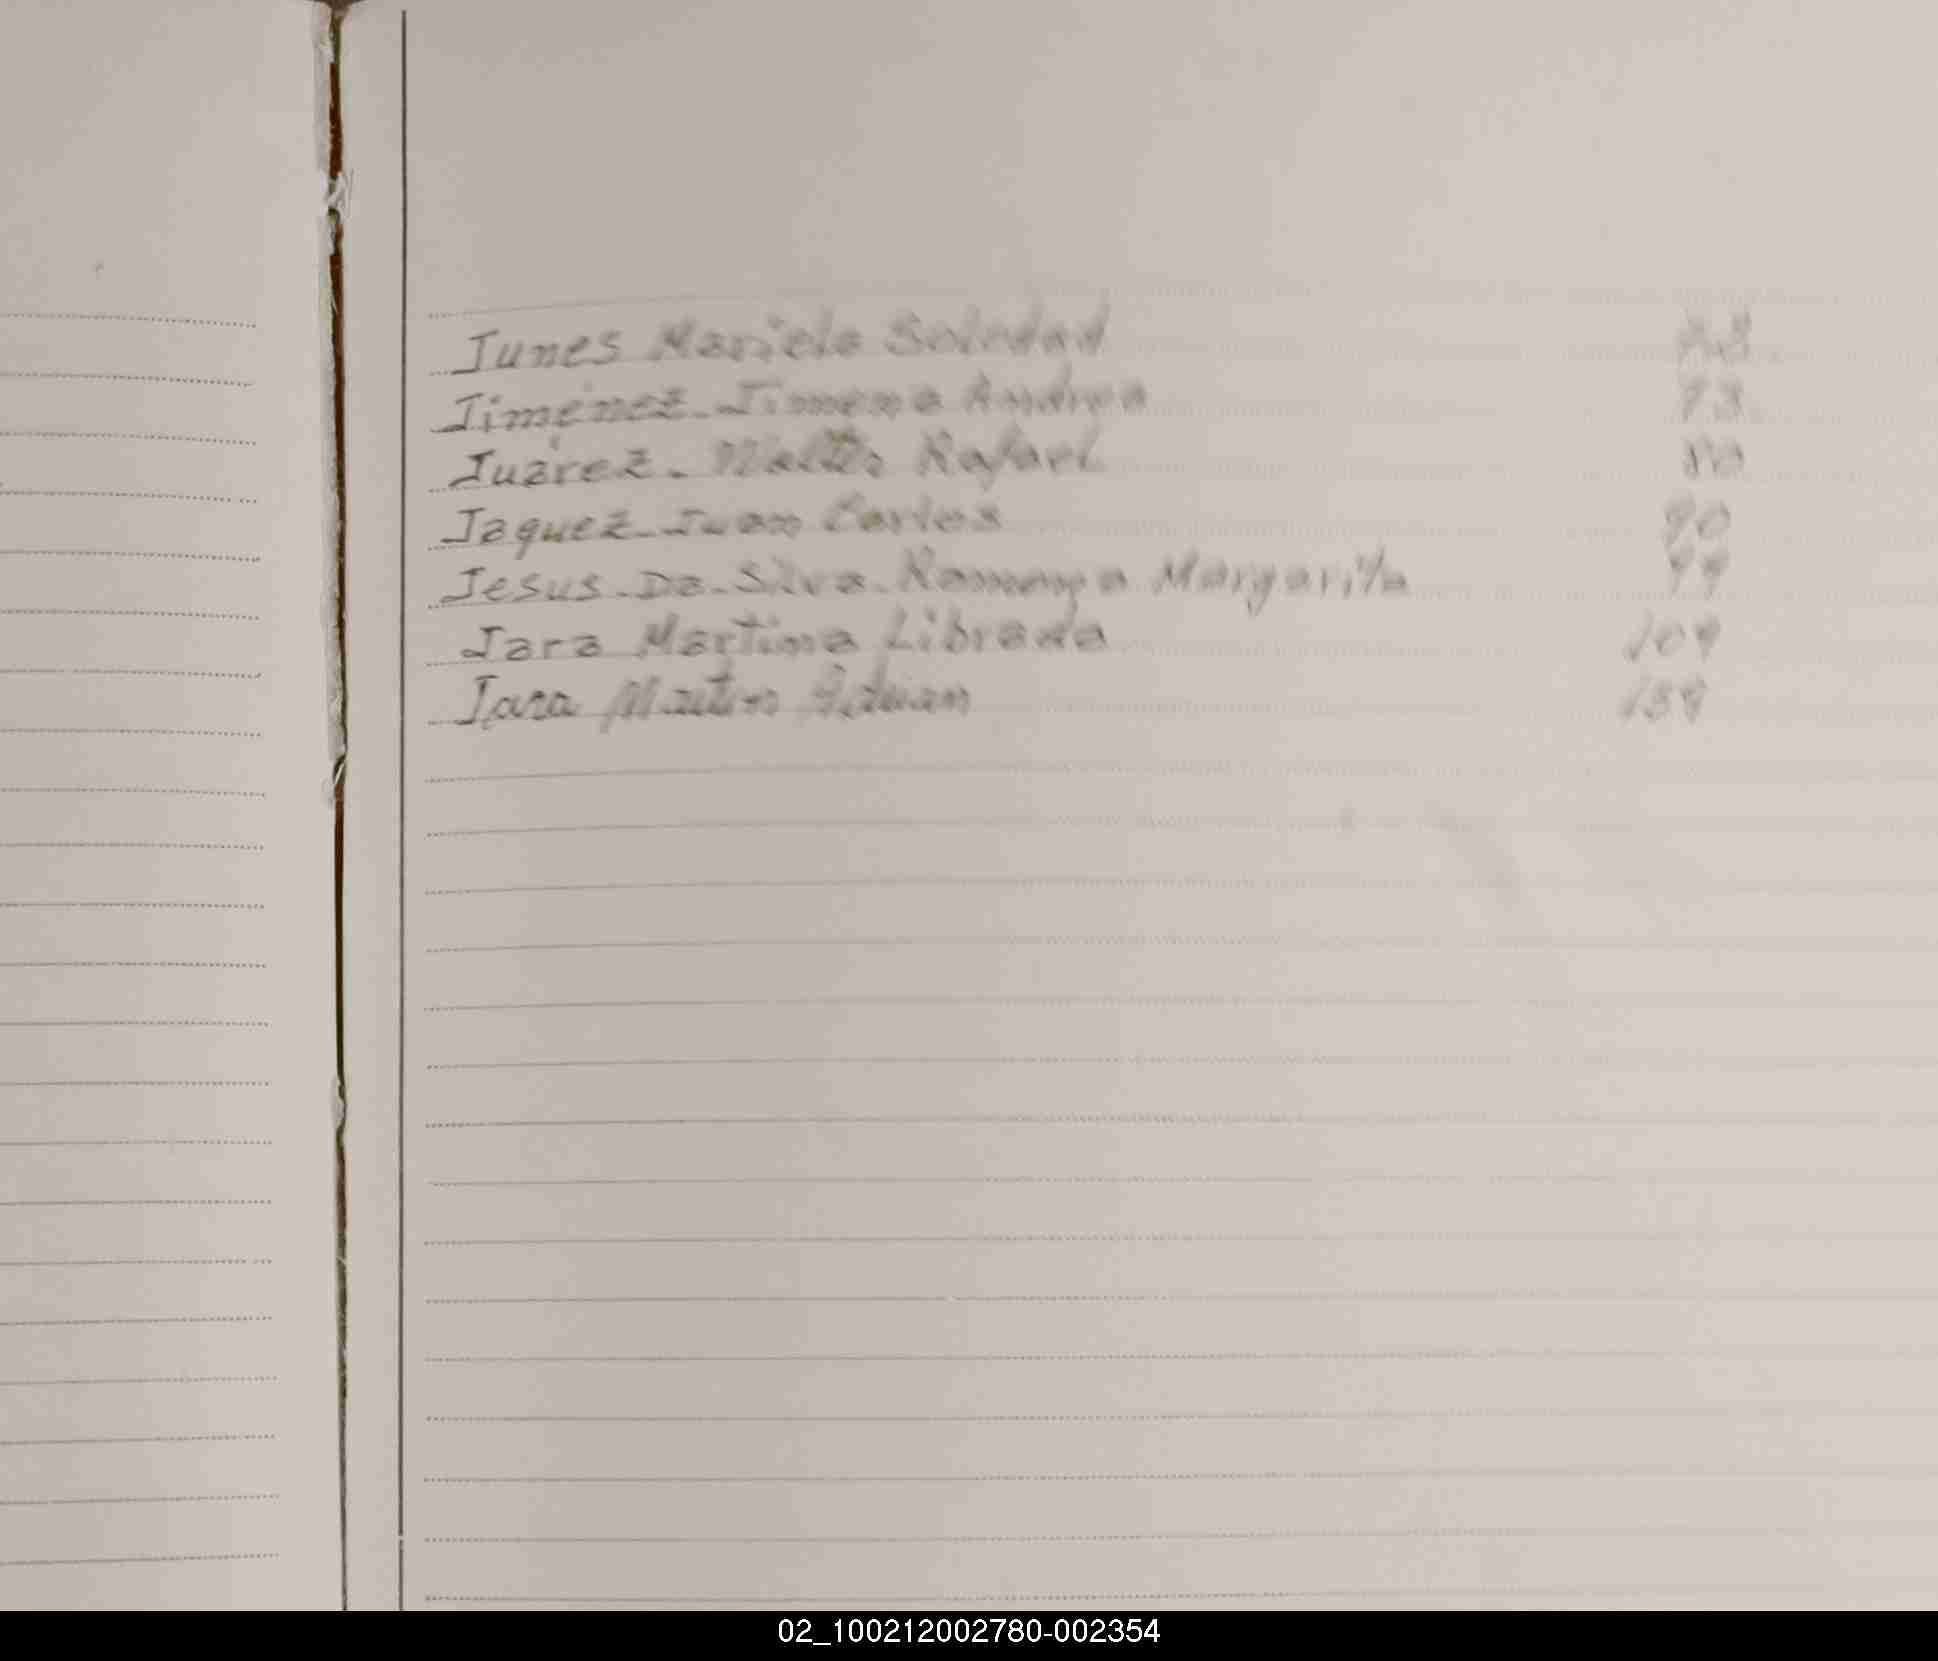 Junes Mariela Soledad
Jiménez - Jimena Andrea 73
Juárez - Rafael
Jaquez - Juan Carlos 90
Jesus - Da - Silva - Ramona Margarita 99
Jara Martina Librada 109
Jara Martin Adrian 159
02_100212002780-002354